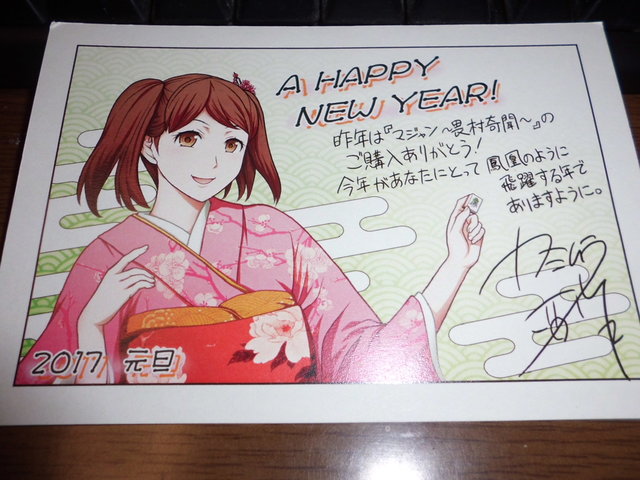 A HAPPY
NEW YEAR!
昨年は『マジャン〜畏村奇聞〜』の
ご購入ありがとう!
今年があなたにとって鳳凰のように
飛躍する年で
ありますように。
2017 元旦